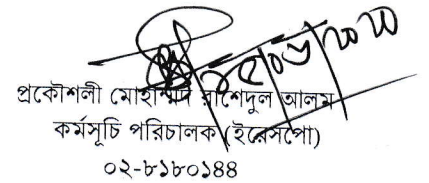 প্রকৌশলী মোহাম্মদ রাশেদুল আলম
কর্মসূচি পরিচালক (ইরেসপো)
০২-৮১৮০১৪৪